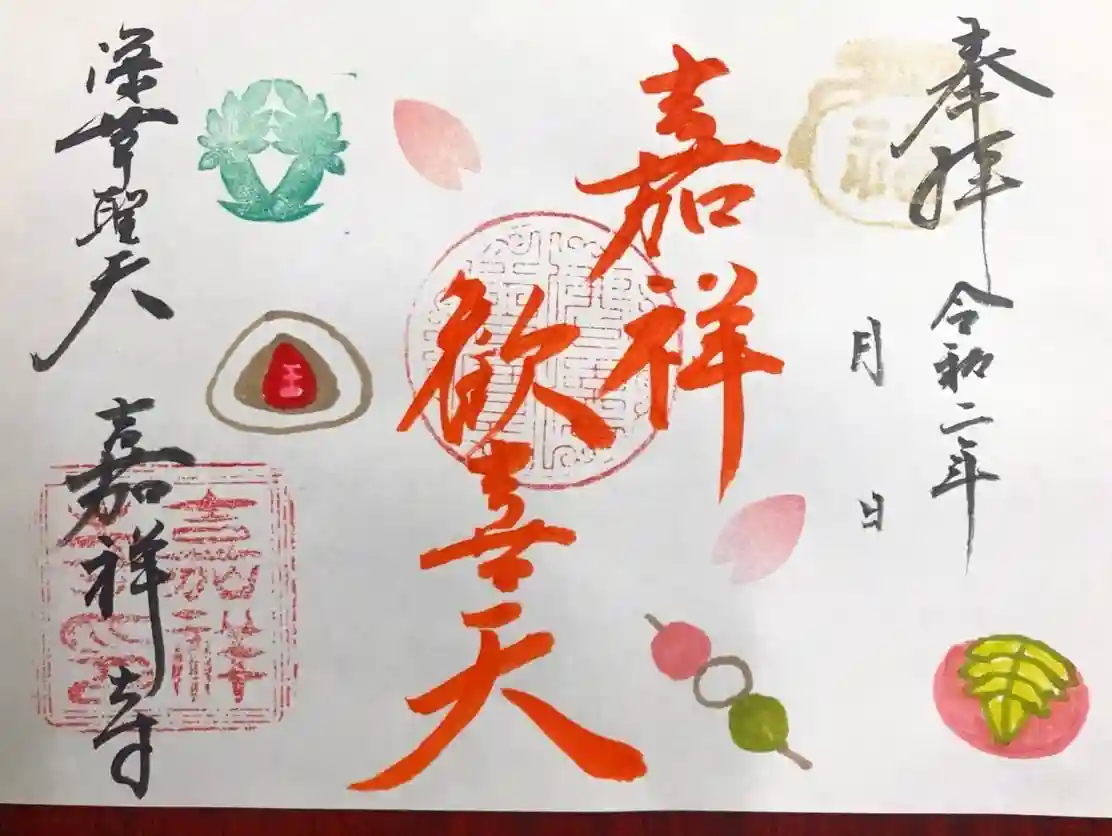 奉拝
令和二年
月
日
福
嘉祥
歓喜天
深草聖天
嘉祥寺